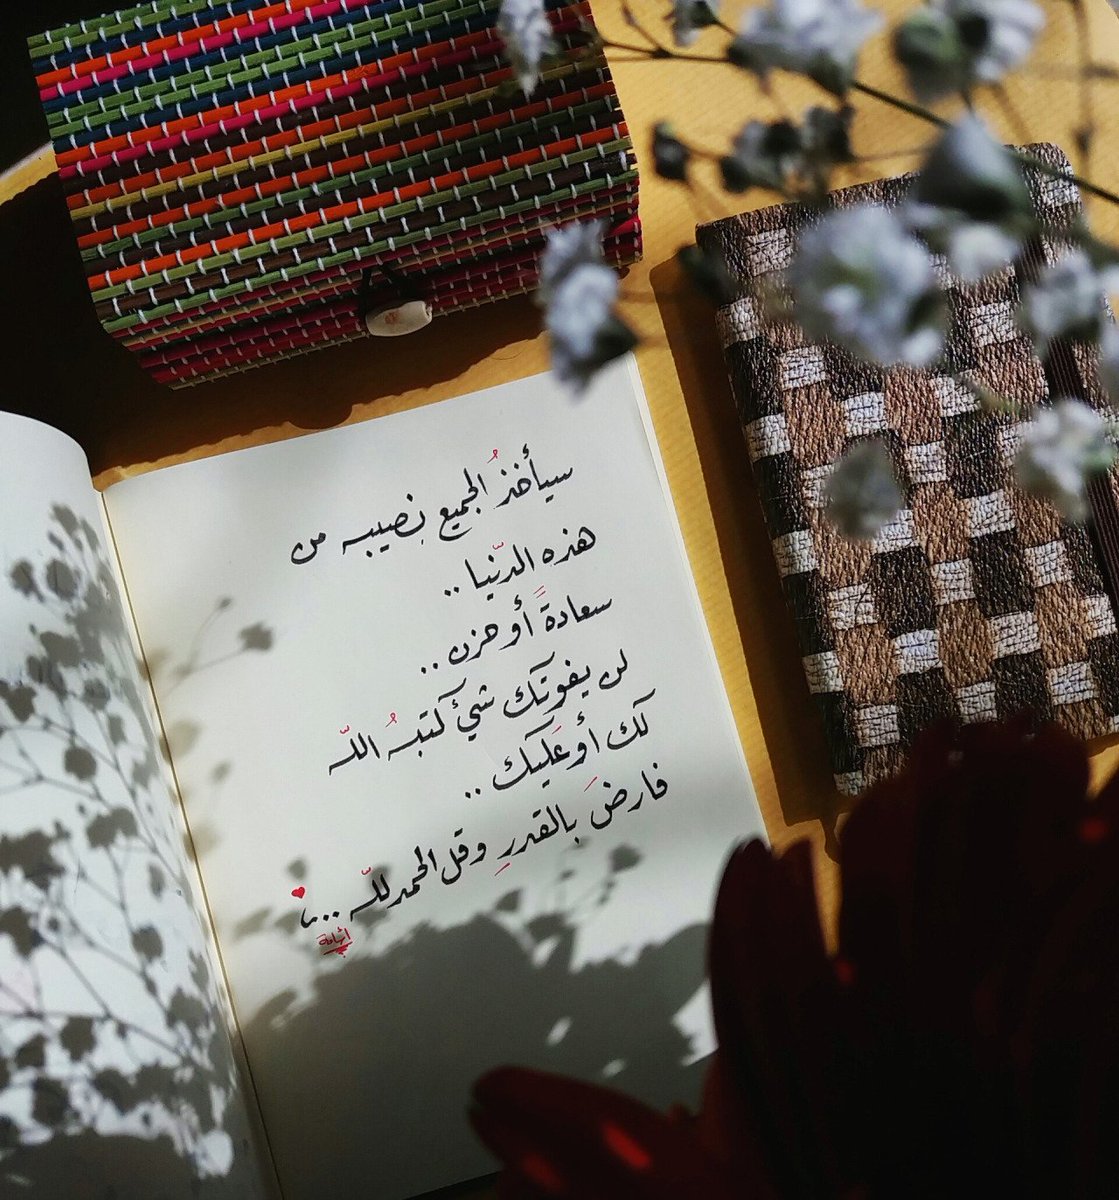 سيأخذُ الجميع نصيبه من
هذه الدّنيا ..
سعادةً أو حزن ..
لن يفوتك شيءٌ كتبهُ اللّه
لك أو عَليك ..
فارضَ بالقدرِ وقل الحمد للّه ...